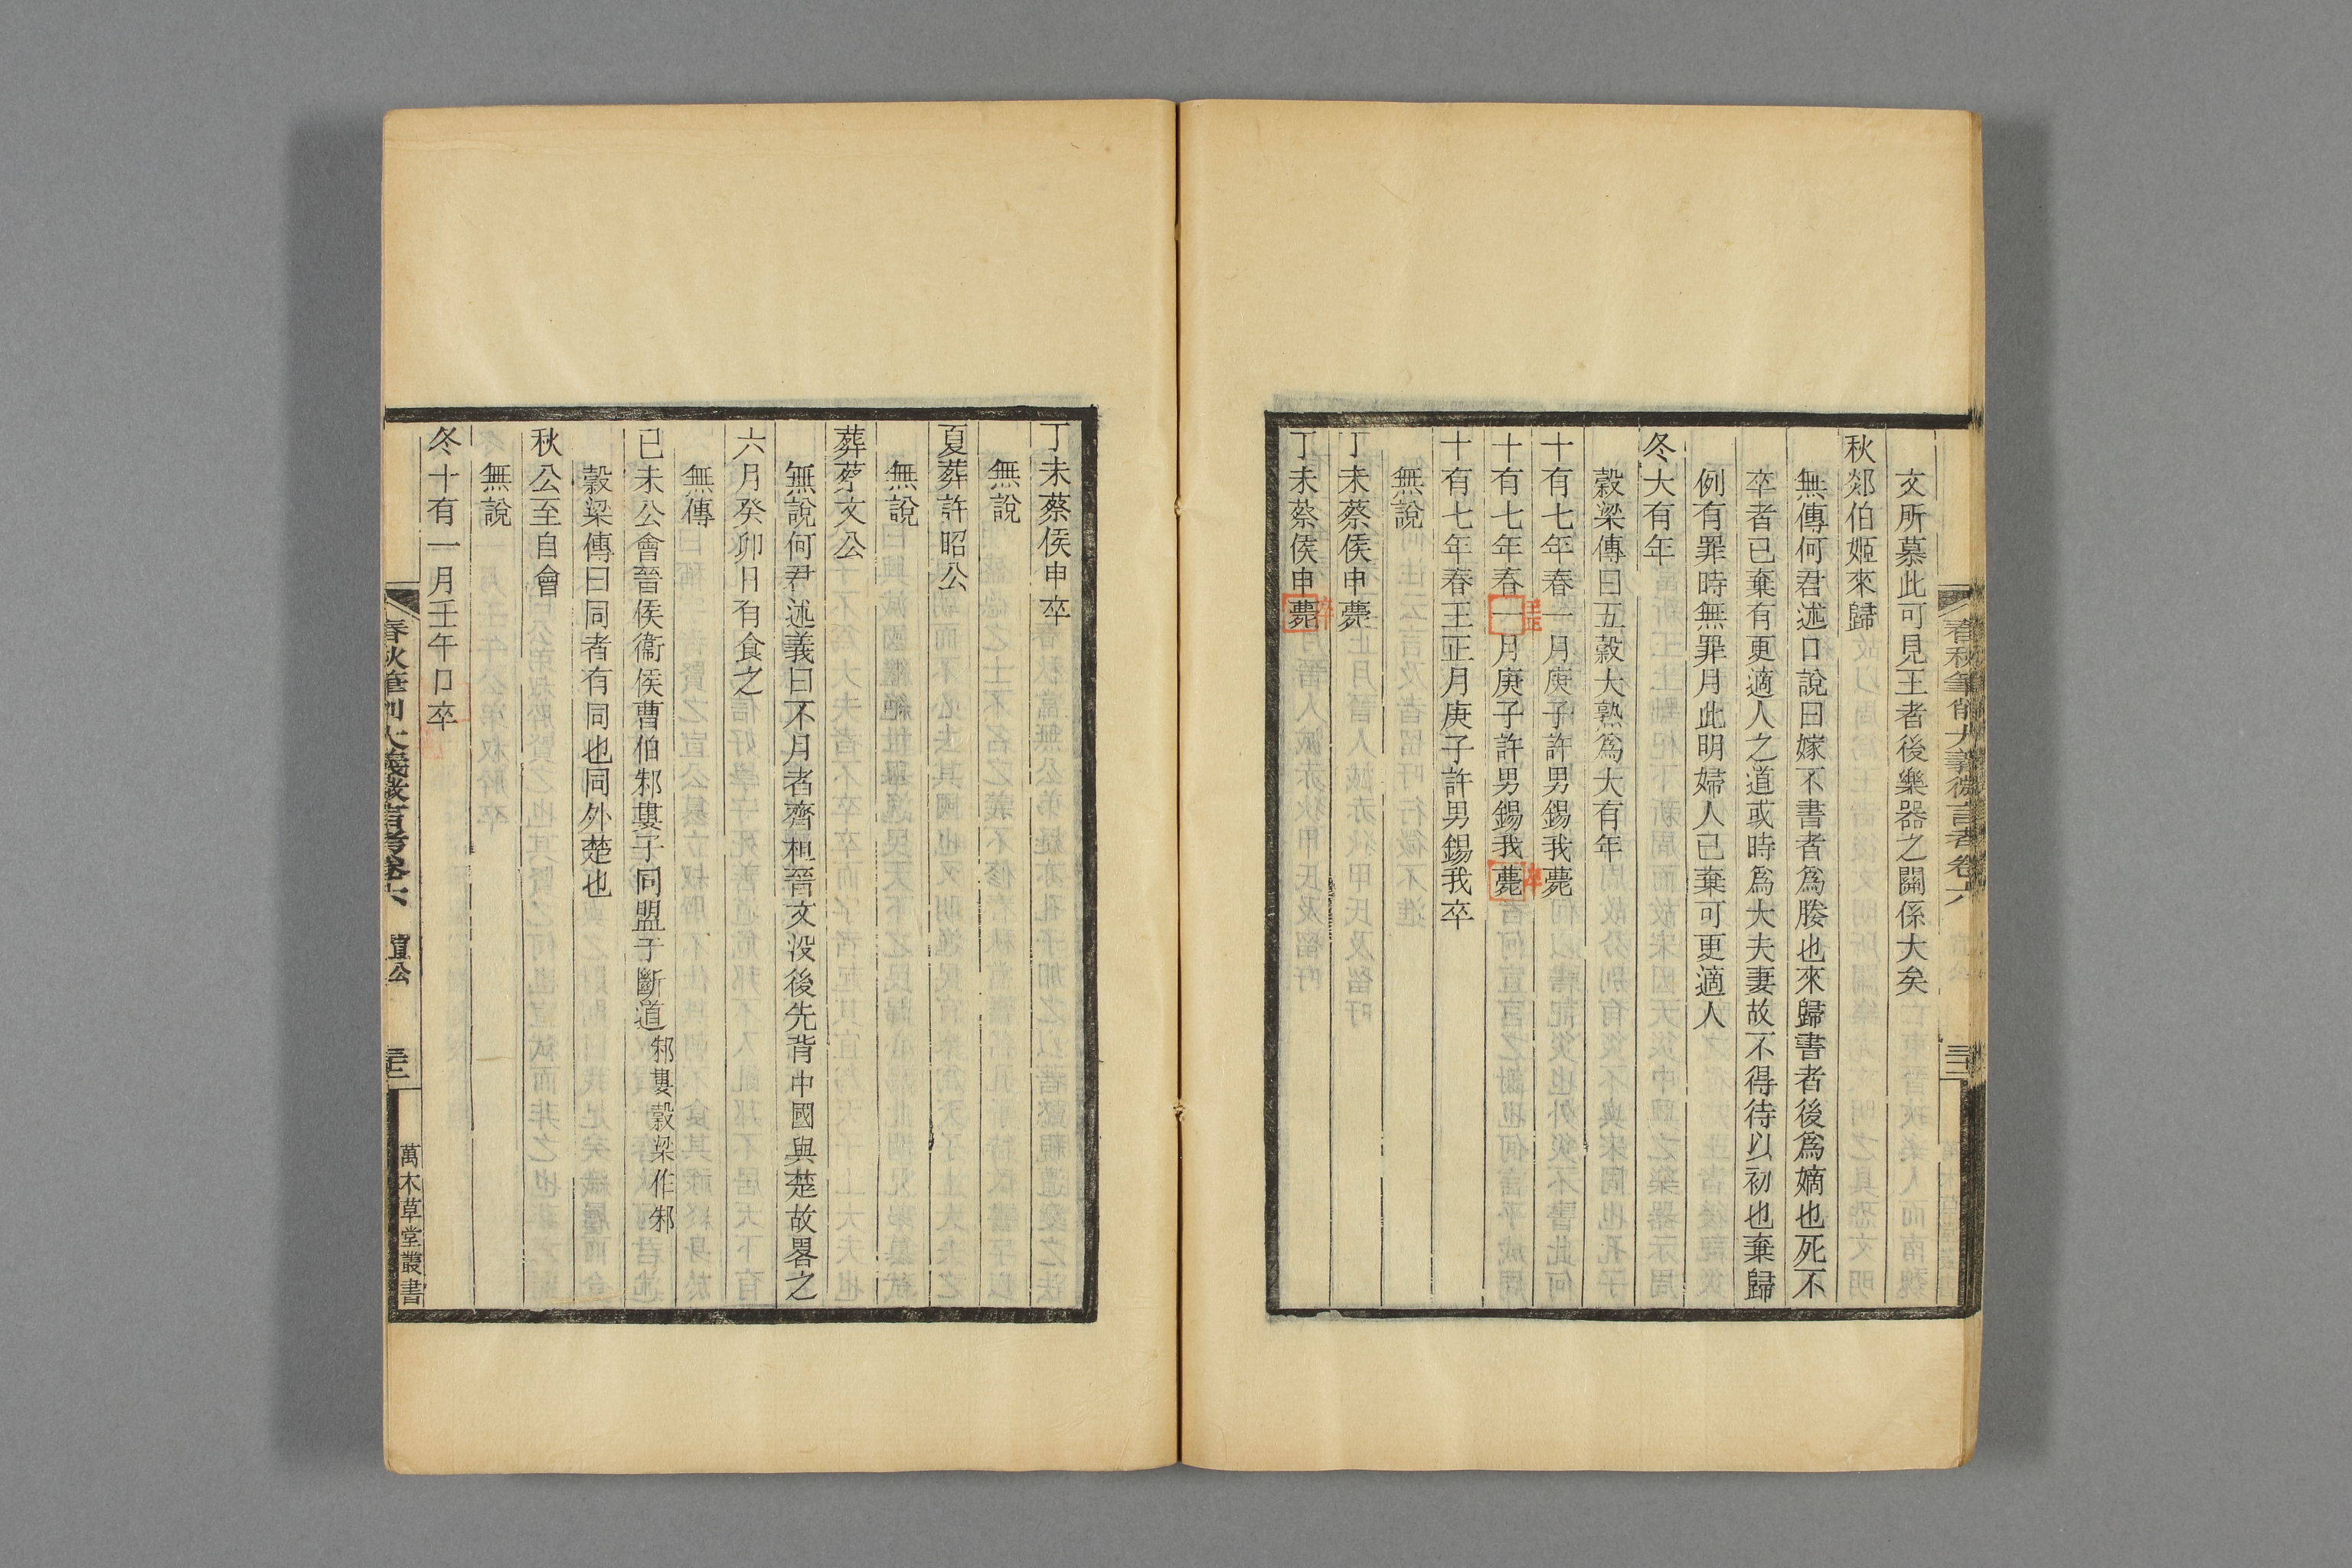 春秋筆削大義微言考卷六
文所慕此可見王者後樂器之關係大矣
秋郯伯姬來歸
無傳何君述口說曰嫁不書者爲媵也來歸書者後爲嫡也死不
卒者已棄有更適人之道或時爲大夫妻故不得待以初也棄歸
例有罪時無罪月此明婦人已棄可更適人
冬大有年
穀梁傳曰五穀大熟爲大有年
十有七年春一月庚子許男錫我薨
十有七年春一月庚子許男錫我薨
王正
卒
十有七年春王正月庚子許男錫我卒
無說
丁未蔡侯申薨
丁未蔡侯申薨
卒
丁未蔡侯申卒
無說
夏葬許昭公
無說
葬蔡文公
無說何君述義曰不月者齊桓晉文沒後先背中國與楚故畧之
六月癸卯日有食之
無傳
己未公會晉侯衞侯曹伯邾婁子同盟于斷道邾婁穀梁作邾
穀梁傳曰同者有同也同外楚也
秋公至自會
無說
冬十有一月壬午口卒
春秋筆削大義微言考卷六 宣公 三十二
萬木草堂叢書